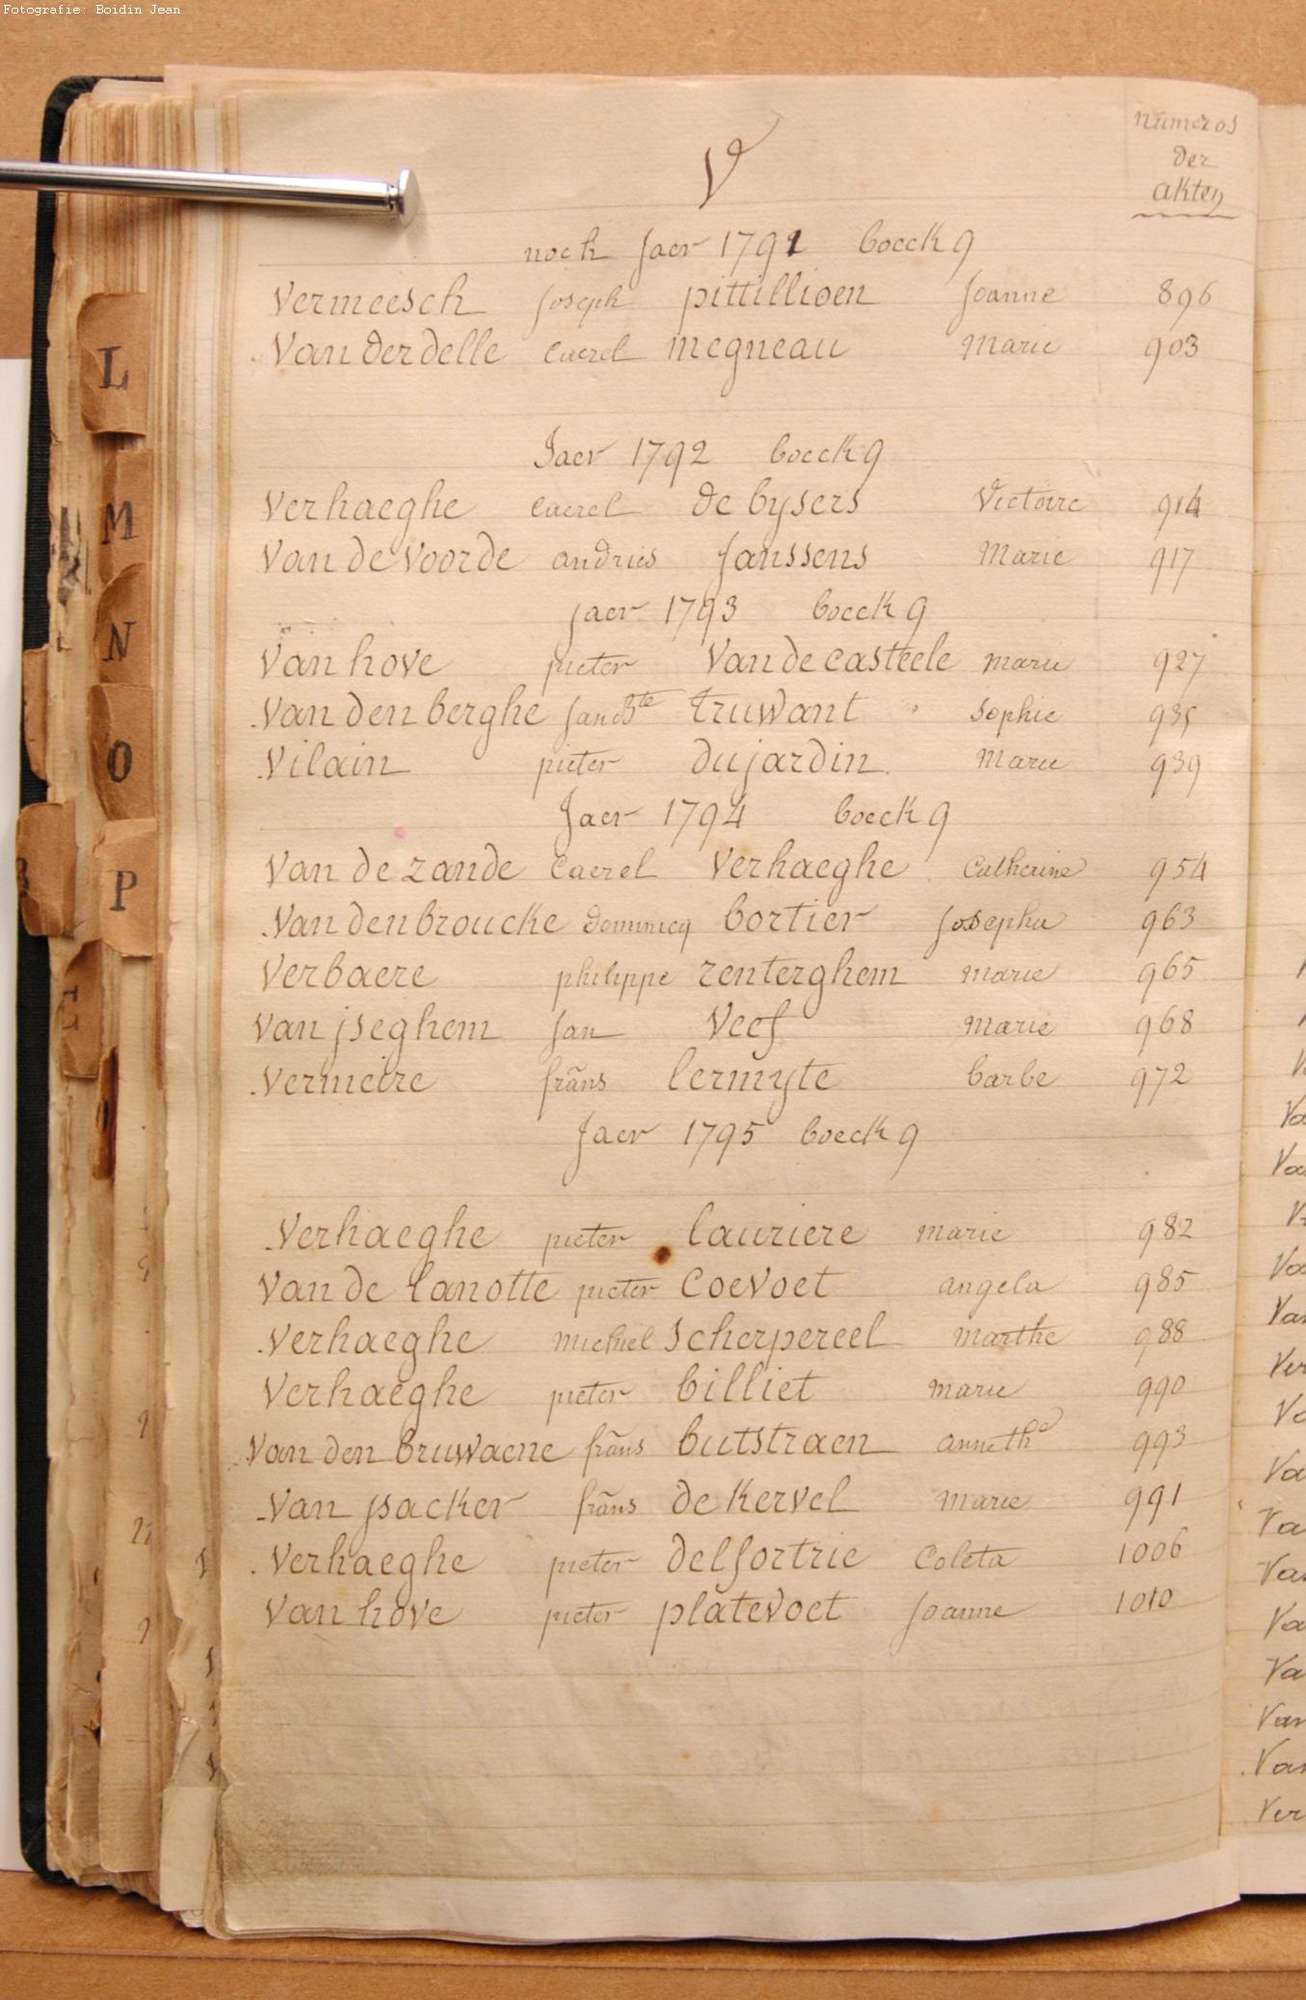 Fotografie: Boidin Jean
numeros
der
akten
V
noch Jaer 1791 boeck 9
Vermeesch Joseph pittillioen Joanne 896
Van der delle Caerel megneau Marie 903
Jaer 1792 boeck 9
Verhaeghe Caerel de bysers Victoire 914
Van de Voorde andries Janssens Marie 917
Jaer 1793 boeck 9
Van hove pieter Van de casteele marie 927
Van den berghe Jan Bte truwant Sophie 935
Vilain pieter dujardin Marie 939
Jaer 1794 boeck 9
Van de zande Caerel Verhaeghe Catherine 954
Van den broucke dominicq bortier Josepha 963
Verbaere philippe renterghem marie 965
Van jseghem Jan Veef marie 968
Vermeire frãns lermyte barbe 972
Jaer 1795 boeck 9
Verhaeghe pieter lauriere marie 982
Van de lanotte pieter Coevoet angela 985
Verhaeghe michiel Scherpereel marthe 988
Verhaeghe pieter billiet marie 990
Van den bruwaene frãns butstraen anne the 993
Van jsacker frãns de Kervel marie 991
Verhaeghe pieter delfortrie Coleta 1006
Van hove pieter platevoet Joanne 1010
L
M
N
O
P